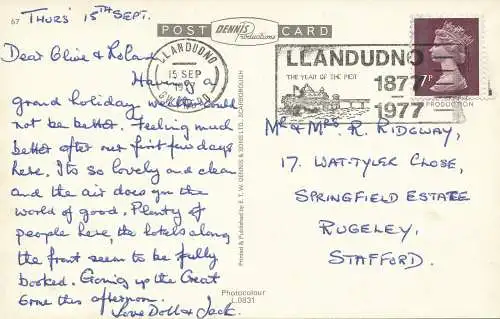 67
THURS 15TH SEPT.
POST DENNIS Productions CARD
Dear Olive & Roland
Having a
grand holiday weather could
not be better. Feeling much
better after our first few days
here. Its so lovely and clean
and the air does you the
world of good. Plenty of
people here, the hotels along
the front seem to be fully
booked. Going up the Great
Orme this afternoon.
Love Doll & Jack.
LLANDUDNO
15 SEP
GWYNEDD
LLANDUDNO
THE YEAR OF THE PIER
1877
1977
7P
PRODUCTION
Printed & Published by E. T. W. DENNIS & SONS LTD., SCARBOROUGH
Photocolour
L.0831
MR & MRS R. RIDGWAY,
17. WAT-TYLER CLOSE,
SPRINGFIELD ESTATE
RUGELEY.
STAFFORD.